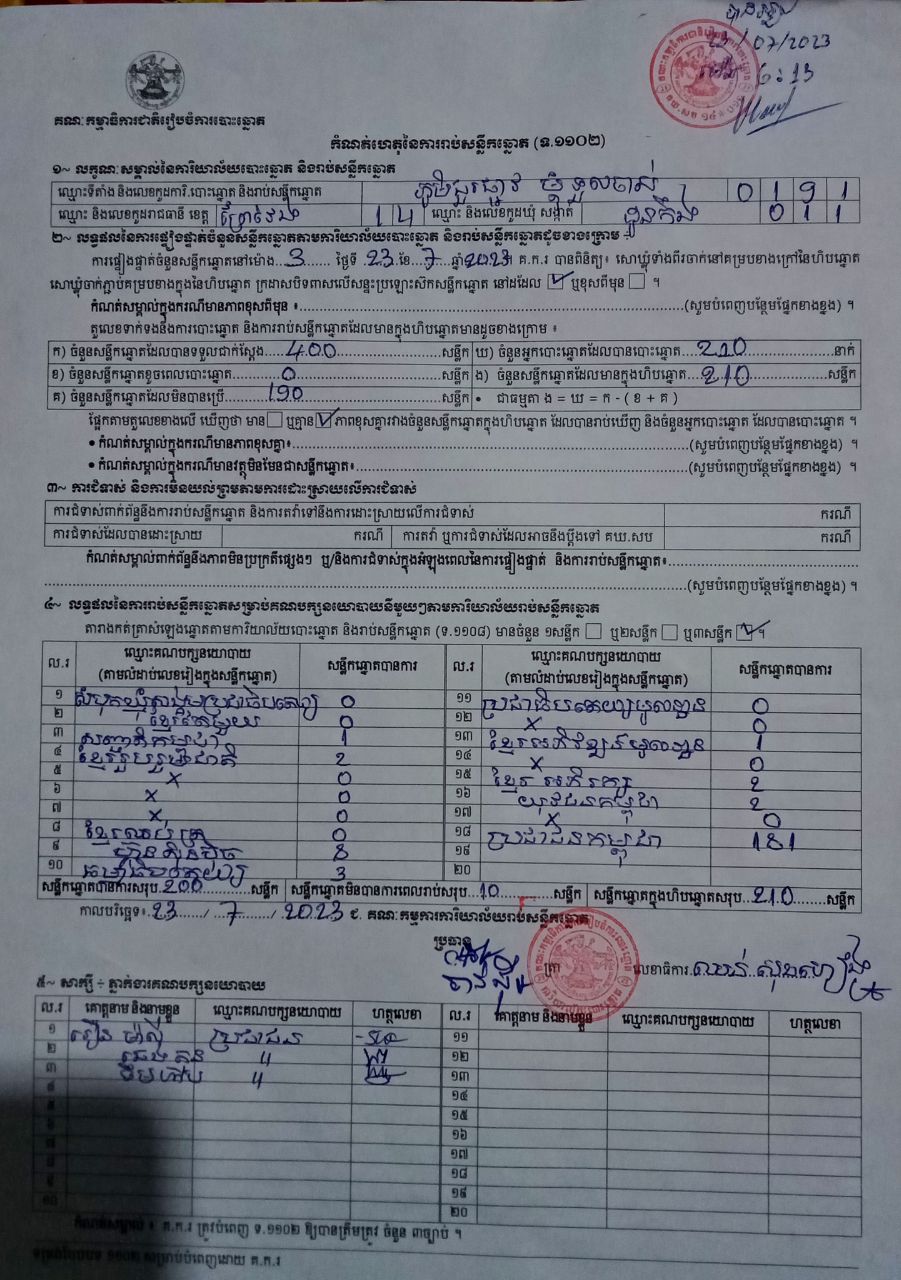 23/07/2023
6:13
គណៈកម្មាធិការជាតិរៀបចំការបោះឆ្នោត
កំណត់ហេតុនៃការរាប់សន្លឹកឆ្នោត (ទ.១១០២)
១~ លក្ខណៈសម្គាល់នៃការិយាល័យបោះឆ្នោត និងរាប់សន្លឹកឆ្នោត
ឈ្មោះទីតាំង និងលេខកូដការិ.បោះឆ្នោត និងរាប់សន្លឹកឆ្នោត 0191
ឈ្មោះ និងលេខកូដរាជធានី ខេត្ត ព្រៃវែង 14 ឈ្មោះ និងលេខកូដឃុំ សង្កាត់ 011
២~ លទ្ធផលនៃការផ្ទៀងផ្ទាត់ចំនួនសន្លឹកឆ្នោតតាមការិយាល័យបោះឆ្នោត និងរាប់សន្លឹកឆ្នោតដូចខាងក្រោម ÷
ការផ្ទៀងផ្ទាត់ចំនួនសន្លឹកឆ្នោតនៅម៉ោង 3 ថ្ងៃទី 23 ខែ 7 ឆ្នាំ 2023 គ.ក.រ បានពិនិត្យ៖ សោឃ្មុំទាំងពីរចាក់នៅគម្របខាងក្រៅនៃហិបឆ្នោត
សោឃ្មុំចាក់ភ្ជាប់គម្របខាងក្នុងនៃហិបឆ្នោត ក្រដាសបិទពាសលើសន្ទះប្រឡោះស៊កសន្លឹកឆ្នោត នៅដដែល ☑ ឬខុសពីមុន ☐ ។
កំណត់សម្គាល់ក្នុងករណីមានភាពខុសពីមុន ៖ (សូមបំពេញបន្ថែមផ្នែកខាងខ្នង) ។
តួលេខទាក់ទងនឹងការបោះឆ្នោត និងការរាប់សន្លឹកឆ្នោតដែលមានក្នុងហិបឆ្នោតមានដូចខាងក្រោម ៖
ក) ចំនួនសន្លឹកឆ្នោតដែលបានទទួលជាក់ស្តែង 400 សន្លឹក ឃ) ចំនួនអ្នកបោះឆ្នោតដែលបានបោះឆ្នោត 210 នាក់
ខ) ចំនួនសន្លឹកឆ្នោតខូចពេលបោះឆ្នោត 0 សន្លឹក ង) ចំនួនសន្លឹកឆ្នោតដែលមានក្នុងហិបឆ្នោត 210 សន្លឹក
គ) ចំនួនសន្លឹកឆ្នោតដែលមិនបានប្រើ 190 សន្លឹក • ជាធម្មតា ង = ឃ = ក - ( ខ + គ )
ផ្អែកតាមតួលេខខាងលើ ឃើញថា មាន ☐ ឬគ្មាន ☑ ភាពខុសគ្នារវាងចំនួនសន្លឹកឆ្នោតក្នុងហិបឆ្នោត ដែលបានរាប់ឃើញ និងចំនួនអ្នកបោះឆ្នោត ដែលបានបោះឆ្នោត ។
• កំណត់សម្គាល់ក្នុងករណីមានភាពខុសគ្នា៖ (សូមបំពេញបន្ថែមផ្នែកខាងខ្នង) ។
• កំណត់សម្គាល់ក្នុងករណីមានវត្ថុមិនមែនជាសន្លឹកឆ្នោត៖ (សូមបំពេញបន្ថែមផ្នែកខាងខ្នង) ។
៣~ ការជំទាស់ និងការមិនយល់ព្រមតាមការដោះស្រាយលើការជំទាស់
ការជំទាស់ពាក់ព័ន្ធនឹងការរាប់សន្លឹកឆ្នោត និងការតវ៉ាទៅនឹងការដោះស្រាយលើការជំទាស់ ករណី
ការជំទាស់ដែលបានដោះស្រាយ ករណី ការតវ៉ា ឬការជំទាស់ដែលអាចនឹងប្តឹងទៅ គឃ.សប ករណី
កំណត់សម្គាល់ពាក់ព័ន្ធនឹងភាពមិនប្រក្រតីផ្សេងៗ ឬ/និងការជំទាស់ក្នុងអំឡុងពេលនៃការផ្ទៀងផ្ទាត់ និងការរាប់សន្លឹកឆ្នោត៖
(សូមបំពេញបន្ថែមផ្នែកខាងខ្នង) ។
៤~ លទ្ធផលនៃការរាប់សន្លឹកឆ្នោតសម្រាប់គណបក្សនយោបាយនីមួយៗតាមការិយាល័យរាប់សន្លឹកឆ្នោត
តារាងកត់ត្រាសំឡេងឆ្នោតតាមការិយាល័យបោះឆ្នោត និងរាប់សន្លឹកឆ្នោត (ទ.១១០៨) មានចំនួន ១សន្លឹក ☐ ឬ២សន្លឹក ☐ ឬ៣សន្លឹក ☑ ។
ល.រ ឈ្មោះគណបក្សនយោបាយ (តាមលំដាប់លេខរៀងក្នុងសន្លឹកឆ្នោត) សន្លឹកឆ្នោតបានការ ល.រ ឈ្មោះគណបក្សនយោបាយ (តាមលំដាប់លេខរៀងក្នុងសន្លឹកឆ្នោត) សន្លឹកឆ្នោតបានការ
១ សំបុកឃ្មុំសង្គមប្រជាធិបតេយ្យ 0 ១១ ប្រជាធិបតេយ្យមូលដ្ឋាន 0
២ ខ្មែរតែមួយ 0 ១២ x 0
៣ សញ្ជាតិកម្ពុជា 1 ១៣ ខ្មែរអភិវឌ្ឍន៍ 1
៤ ខ្មែររួបរួមជាតិ 2 ១៤ x 0
៥ x 0 ១៥ ខ្មែរអភិរក្ស 2
៦ x 0 ១៦ យុវជនកម្ពុជា 2
៧ x 0 ១៧ x 0
៨ ខ្មែរឈប់ក្រ 0 ១៨ ប្រជាជនកម្ពុជា 181
៩ ហ៊្វុនស៊ិនប៉ិច 8 ១៩
១០ 3 ២០
សន្លឹកឆ្នោតបានការសរុប 200 សន្លឹក សន្លឹកឆ្នោតមិនបានការពេលរាប់សរុប 10 សន្លឹក សន្លឹកឆ្នោតក្នុងហិបឆ្នោតសរុប 210 សន្លឹក
កាលបរិច្ឆេទ៖ 23 / 7 / 2023 ជ. គណៈកម្មការការិយាល័យរាប់សន្លឹកឆ្នោត
ប្រធាន ត្រា លេខាធិការ
៥~ សាក្សី ÷ ភ្នាក់ងារគណបក្សនយោបាយ
ល.រ គោត្តនាម និងនាមខ្លួន ឈ្មោះគណបក្សនយោបាយ ហត្ថលេខា ល.រ គោត្តនាម និងនាមខ្លួន ឈ្មោះគណបក្សនយោបាយ ហត្ថលេខា
១ ប្រជាជន ១១
២ " ១២
៣ " ១៣
៤ ១៤
៥ ១៥
៦ ១៦
៧ ១៧
៨ ១៨
៩ ១៩
១០ ២០
កំណត់សម្គាល់ ៖ គ.ក.រ ត្រូវបំពេញ ទ.១១០២ ឱ្យបានត្រឹមត្រូវ ចំនួន ៣ច្បាប់ ។
១១០២ សម្រាប់បំពេញដោយ គ.ក.រ